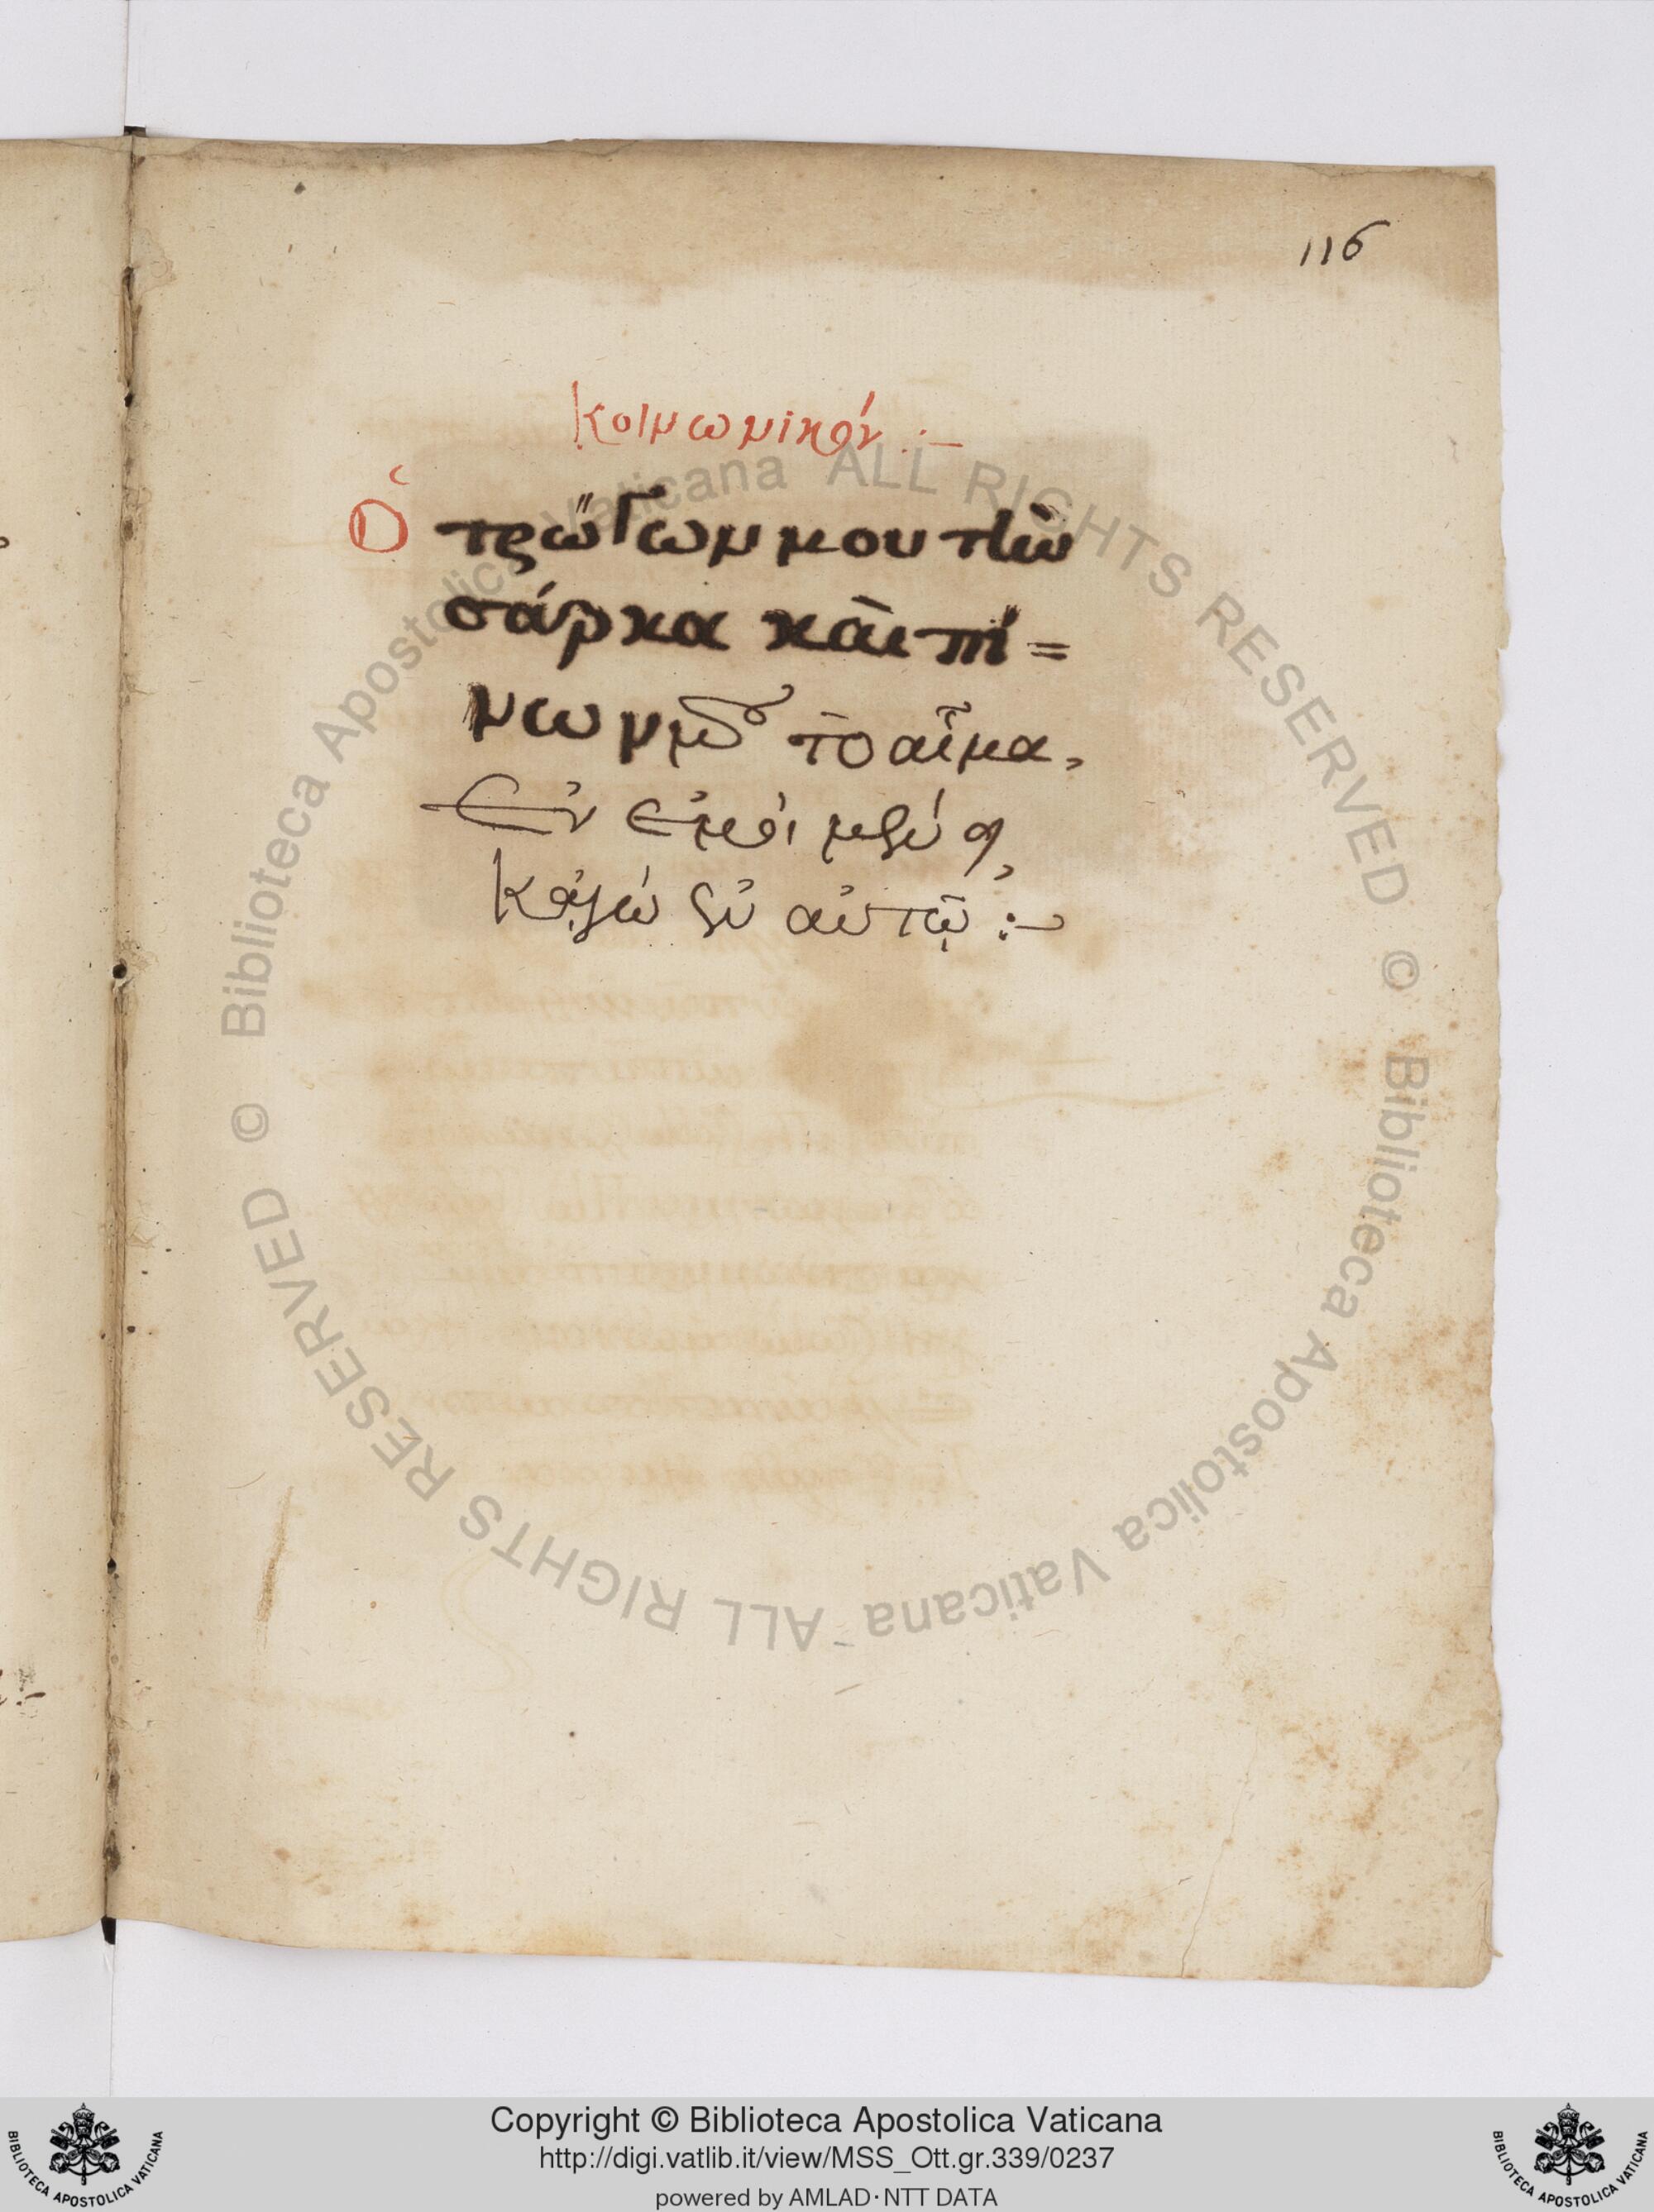 116
Κοινωνικόν :—
Ὁ τρώγων μου τὴν
σάρκα καὶ πί=
νων μου τὸ αἷμα,
ἐν ἐμοὶ μένει,
κἀγὼ ἐν αὐτῷ :—
© Biblioteca Apostolica Vaticana ALL RIGHTS RESERVED © Biblioteca Apostolica Vaticana ALL RIGHTS RESERVED
Copyright © Biblioteca Apostolica Vaticana
http://digi.vatlib.it/view/MSS_Ott.gr.339/0237
powered by AMLAD·NTT DATA
BIBLIOTECA APOSTOLICA VATICANA
BIBLIOTECA APOSTOLICA VATICANA